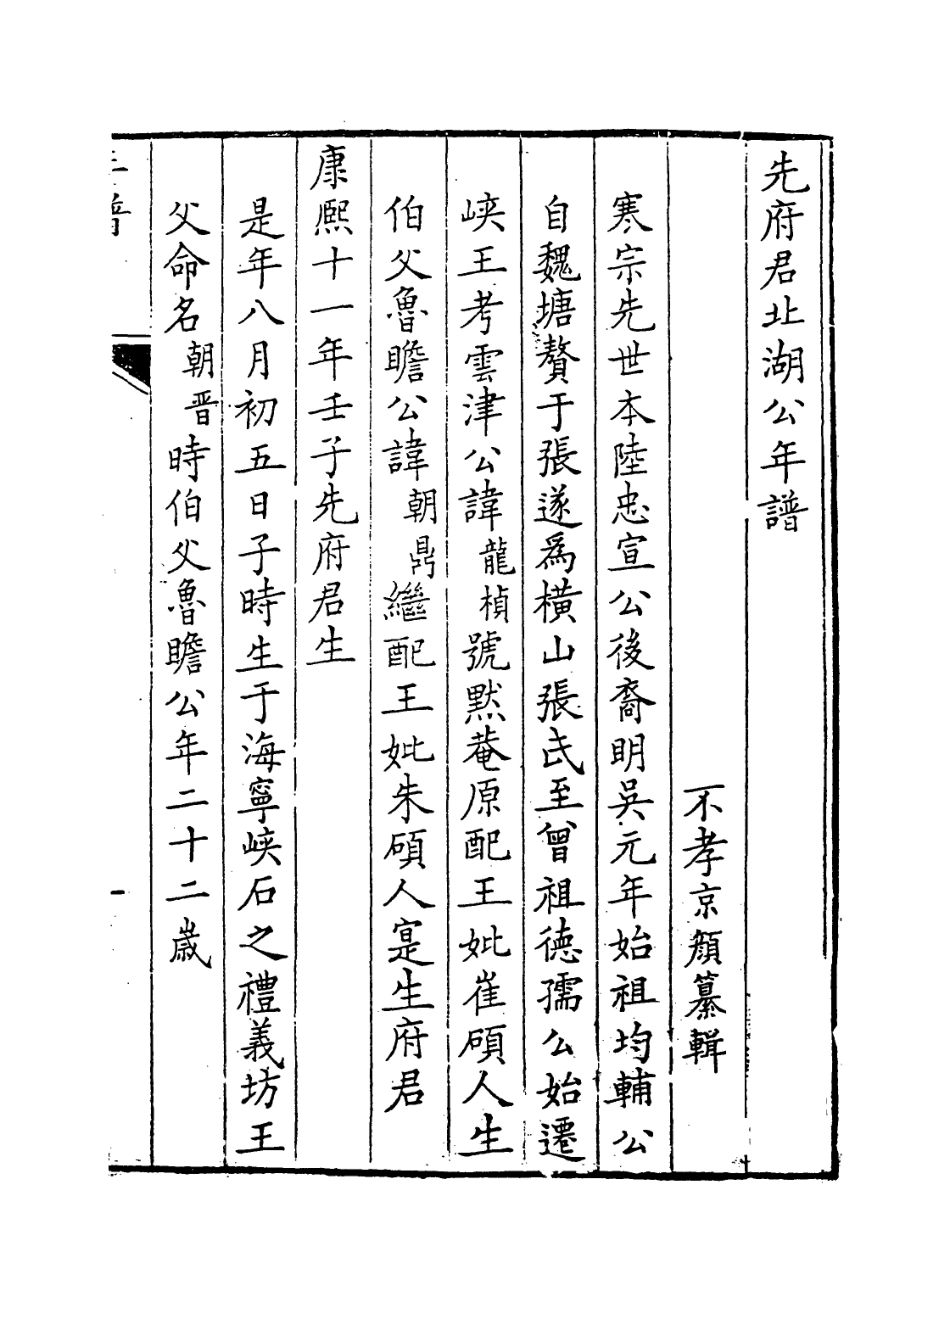 先府君北湖公年譜
不孝京顏纂輯
寒宗先世本陸忠宣公後裔明吳元年始祖均輔公
自魏塘贅于張遂爲橫山張氏至曾祖德孺公始遷
峽王考雲津公諱龍楨號默菴原配王妣崔碩人生
伯父魯瞻公諱朝鼎繼配王妣朱碩人寔生府君
康熙十一年壬子先府君生
是年八月初五日子時生于海寧峽石之禮義坊王
父命名朝晋時伯父魯瞻公年二十二歲
年譜
一